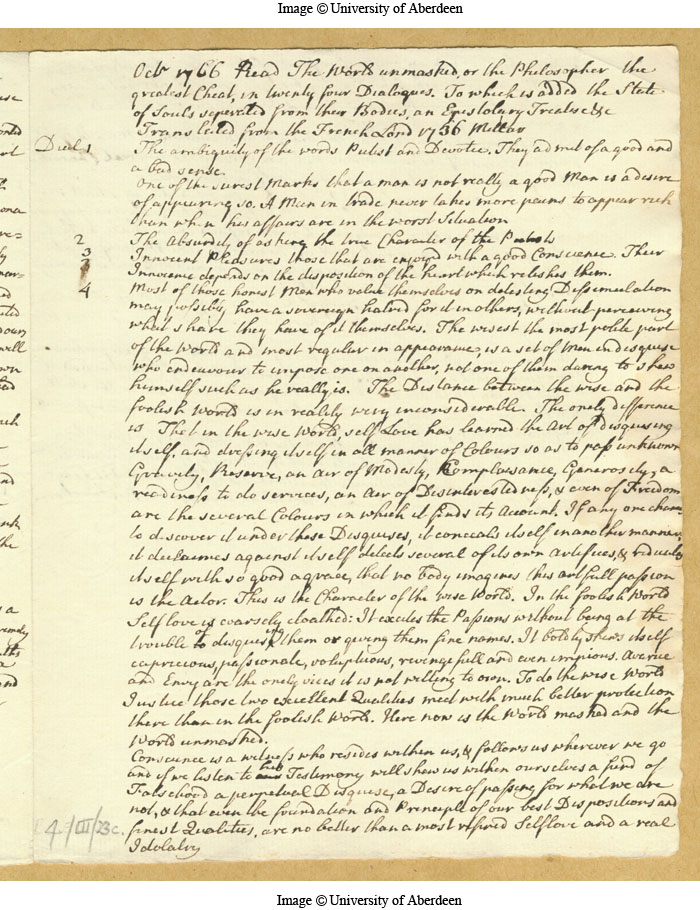 Image © University of Aberdeen
Octr 1766 Read The World unmasked, or the Philosopher the
greatest Cheat, in twenty four Dialogues. To which is added the State
of Souls seperated from their Bodies, an Epistolary Treatise &c
Translated from the French Lond 1736 Millar
Dial 1 The ambiguity of the words Pietist and Devotee. They admit of a good and
a bad sense.
One of the surest Marks that a man is not really a good Man is a desire
of appearing so. A Man in trade never takes more pains to appear rich
than when his affairs are in the worst Situation
2 The Absurdity of asking the true Character of the Pietists
3 Innocent Pleasures those that are enjoyed with a good Conscience. Their
Innocence depends on the disposition of the heart which relishes them.
4 Most of those honest Men who value themselves on detesting Dissimulation
may possibly have a sovereign hatred for it in others, without perceiving
what share they have of it themselves. The wisest the most polite part
of the World and most regular in appearance, is a set of Men in disguise
who endeavour to impose one on another, not one of them daring to shew
himself such as he really is. The Distance between the wise and the
foolish World is in reality very inconsiderable. The onely difference
is That in the wise World, self Love has learned the Art of disguising
itself, and dressing itself in all manner of Colours so as to pass unknown
Gravity, Reserve, an Air of Modesty, Complaisance, Generosity, a
readiness to do services, an Air of Disinterestedness, & even of Freedom
are the several Colours in which it finds its Account. If any one chance
to discover it under these Disguises, it conceals itself in another manner,
it declaimes against itself detects several of its own Artifices, & ridicules
itself with so good a grace, that no body imagines this artfull passion
is the Actor. This is the Character of the wise World. In the foolish World
Self love is coarsely cloathed: It excites the Passions without being at the
trouble to disguise them or giving them fine names. It boldly shews itself
capricious, passionate, voluptuous, revengefull and even impious. Avarice
and Envy are the onely vices it is not willing to own. To do the wise World
Justice those two excellent Qualities meet with much better protection
there than in the foolish World. Here now is the World masked and the
World unmasked.
Conscience is a witness who resides within us, & follows us wherever we go
and if we listen to her Testimony will shew us within ourselves a fund of
Falsehood a perpetual Disguise, a Desire of passing for what we are
not, & that even the foundation and Principle of our best Dispositions and
finest Qualities, are no better than a most refined Selflove and a real
Idolatry
4/III/23c.
Image © University of Aberdeen